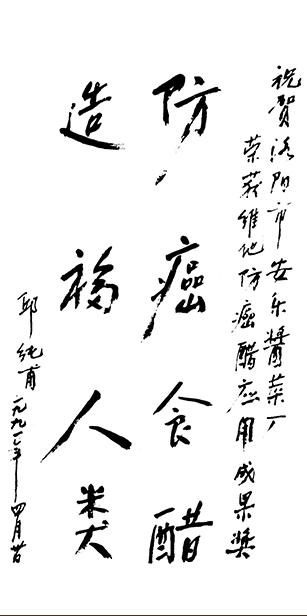 祝贺洛阳市安乐酱菜厂
荣获维他防癌醋应用成果奖
防癌食醋
造福人类
邱纯甫
一九九一年四月廿